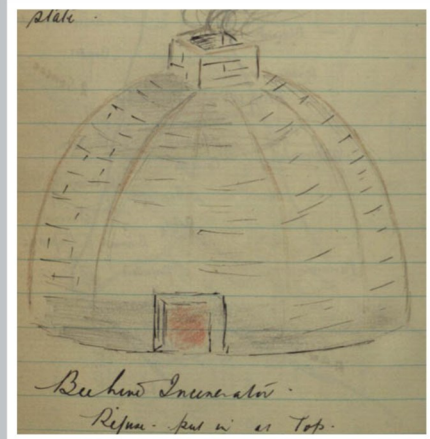 state.
Beehive Incinerator.
Refuse - put in at Top.